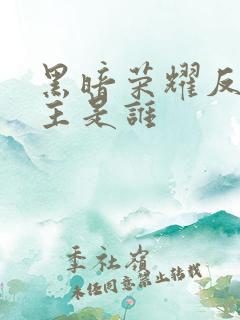 黑暗荣耀反
王是誰
季社嶺
未经同意禁止转载